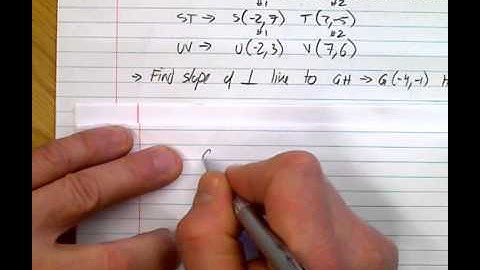 #1 #2
ST → S(-2,7) T(7,-5)
#1 #2
UV → U(-2,3) V(7,6)
→ Find slope of ⊥ line to GH → G(-4,-1) H